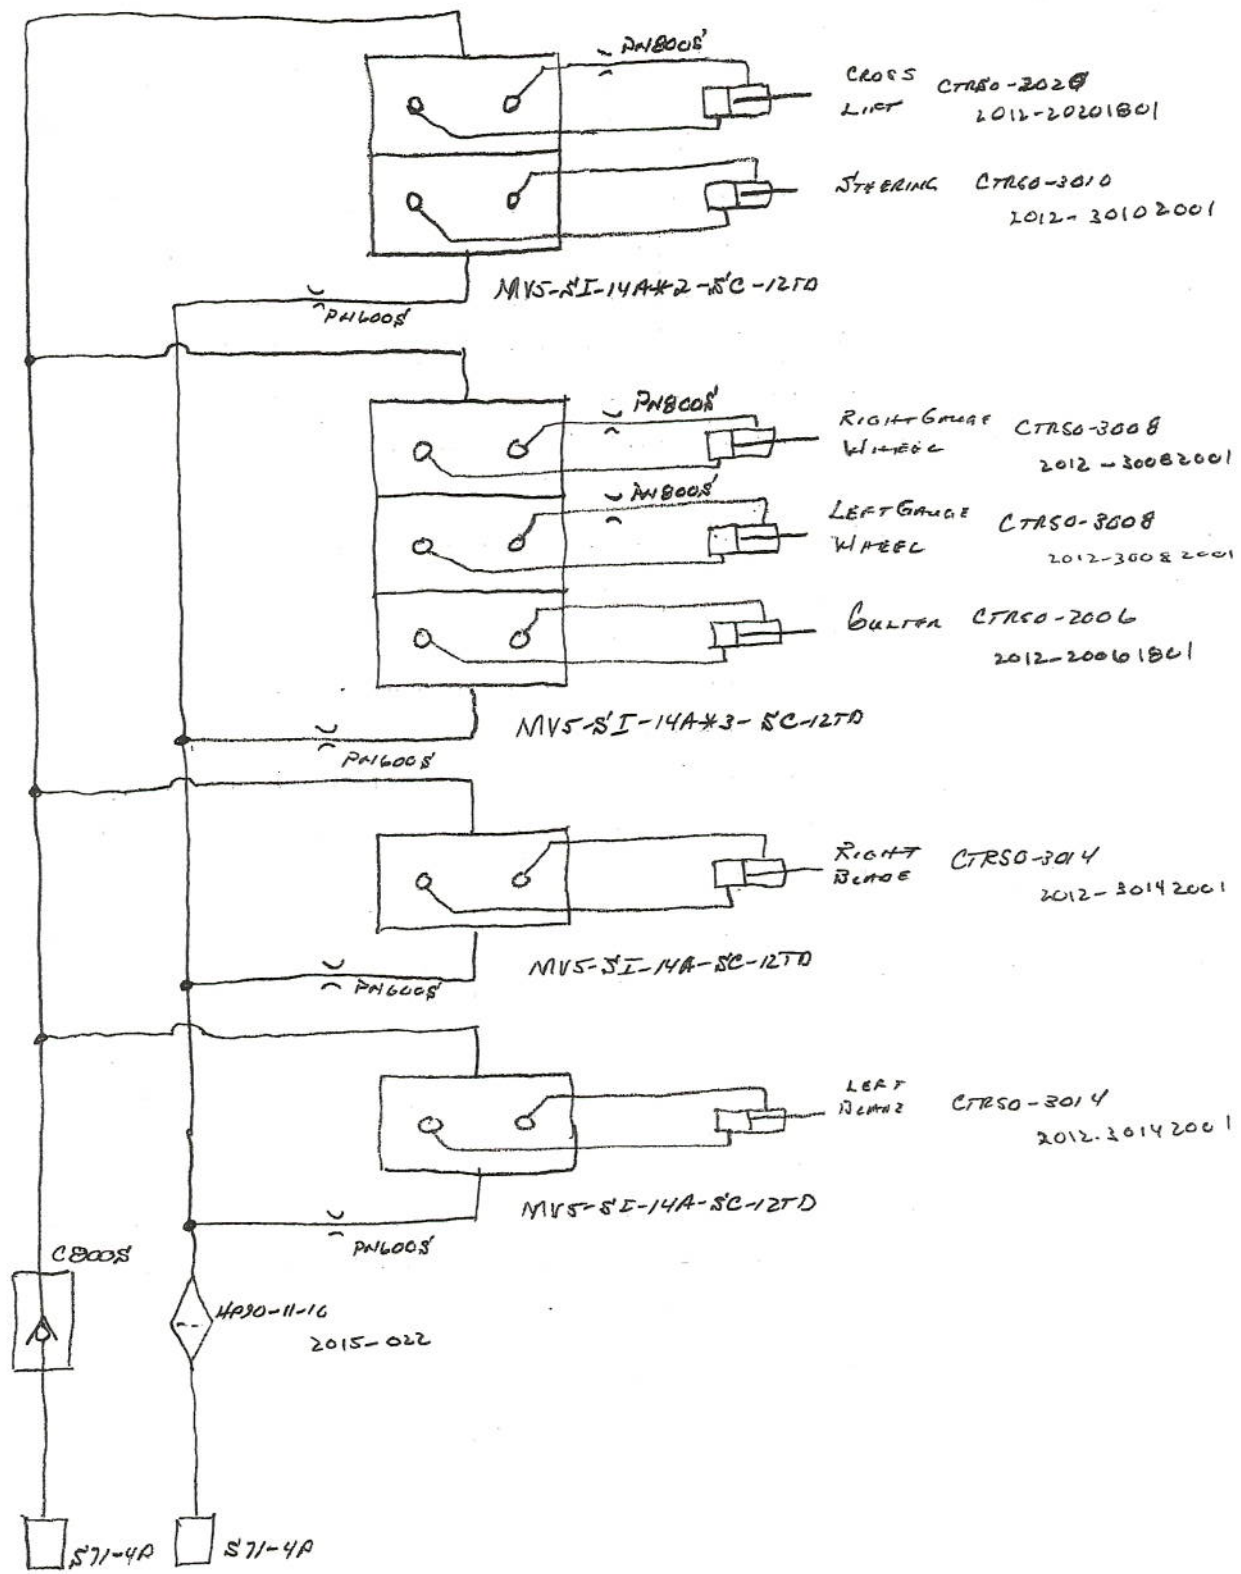 PN800S
CROSS LIFT
CTR50-2020
2012-20201801
STEERING CTR50-3010
2012-30102001
MV5-SI-14A*2-SC-12TD
PN600S
PN800S
RIGHT GAUGE WHEEL
CTR50-3008
2012-30082001
PN800S
LEFT GAUGE WHEEL
CTR50-3008
2012-30082001
CTR50-2006
2012-20061801
MV5-SI-14A*3-SC-12TD
PN600S
RIGHT BLADE
CTR50-3014
2012-30142001
MV5-SI-14A-SC-12TD
PN600S
LEFT BLADE
CTR50-3014
2012-30142001
MV5-SI-14A-SC-12TD
PN600S
C800S
2015-022
S71-4P
S71-4P